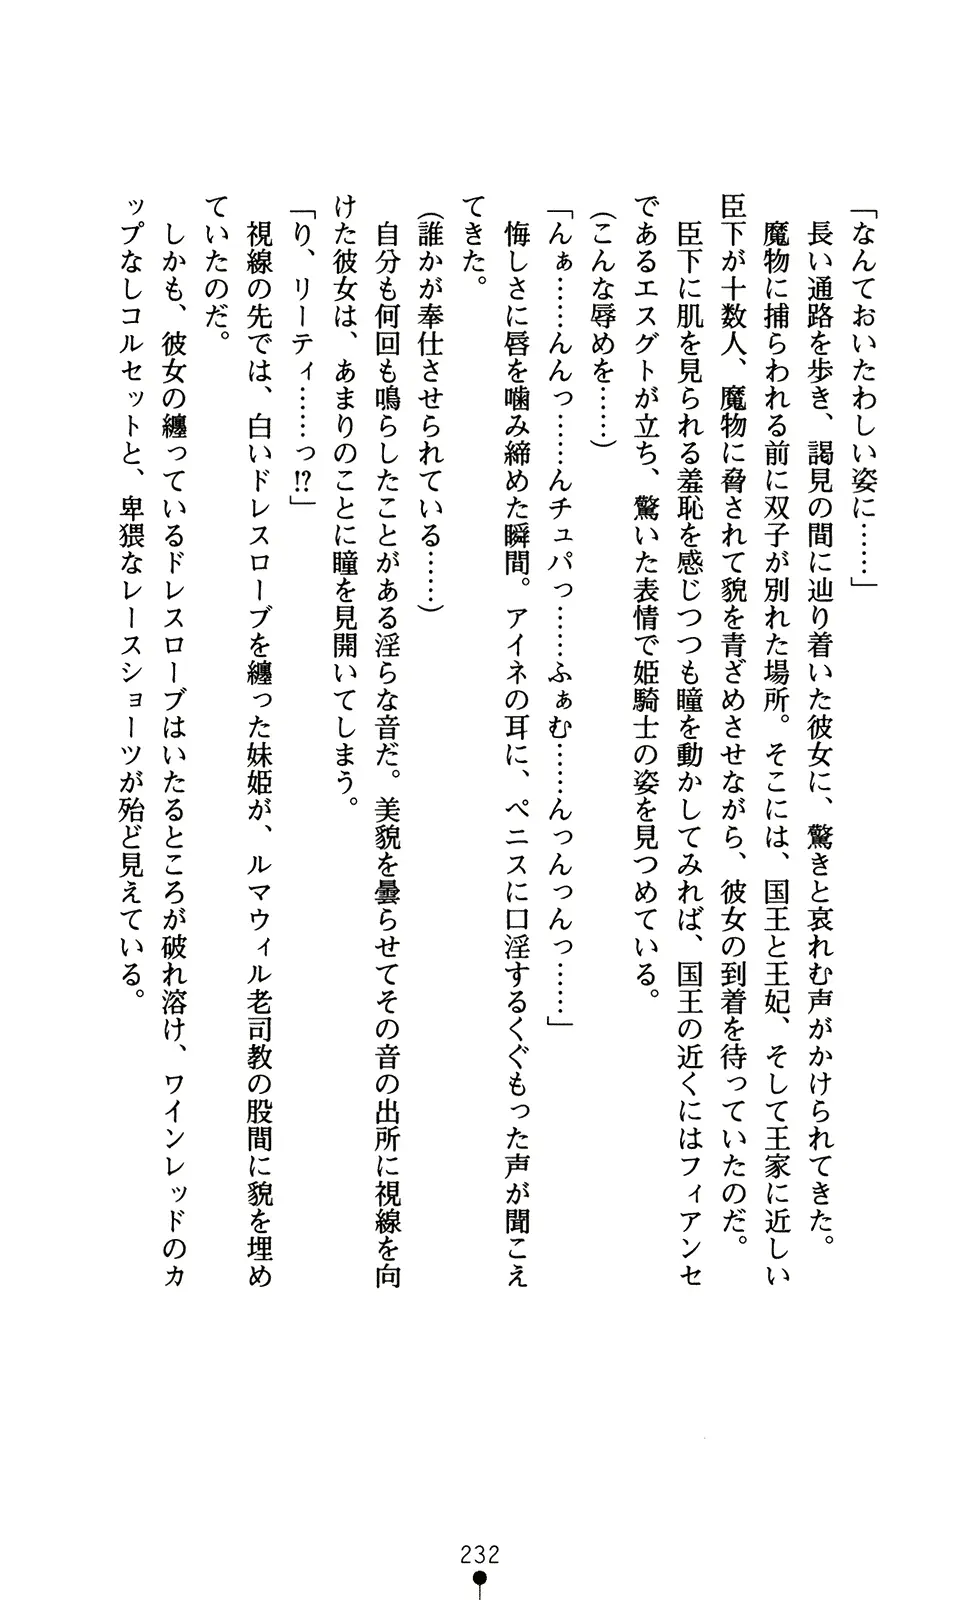 「なんておいたわしい姿に……」
　長い通路を歩き、謁見の間に辿り着いた彼女に、驚きと哀れむ声がかけられてきた。
　魔物に捕らわれる前に双子が別れた場所。そこには、国王と王妃、そして王家に近しい
臣下が十数人、魔物に脅されて貌を青ざめさせながら、彼女の到着を待っていたのだ。
　臣下に肌を見られる羞恥を感じつつも瞳を動かしてみれば、国王の近くにはフィアンセ
であるエスグトが立ち、驚いた表情で姫騎士の姿を見つめている。
(こんな辱めを……)
「んぁ……んんっ……んチュパっ……ふぁむ……んっんっんっ……」
　悔しさに唇を噛み締めた瞬間。アイネの耳に、ペニスに口淫するくぐもった声が聞こえ
てきた。
(誰かが奉仕させられている……)
　自分も何回も鳴らしたことがある淫らな音だ。美貌を曇らせてその音の出所に視線を向
けた彼女は、あまりのことに瞳を見開いてしまう。
「り、リーティ……っ!?」
　視線の先では、白いドレスローブを纏った妹姫が、ルマウィル老司教の股間に貌を埋め
ていたのだ。
　しかも、彼女の纏っているドレスローブはいたるところが破れ溶け、ワインレッドのカ
ップなしコルセットと、卑猥なレースショーツが殆ど見えている。
232